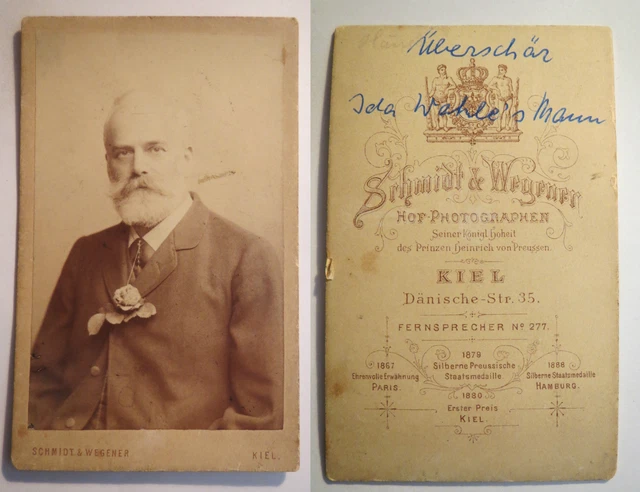 SCHMIDT & WEGENER
KIEL.
Überschär
Ida Wahle's Mann
Schmidt & Wegener
HOF-PHOTOGRAPHEN
Seiner Königl. Hoheit
des Prinzen Heinrich von Preussen.
KIEL
Dänische-Str. 35.
FERNSPRECHER No. 277.
1867
Ehrenvolle Erwähnung
PARIS.
1879
Silberne Preussische
Staatsmedaille
1880
Erster Preis
KIEL.
1888
Silberne Staatsmedaille
HAMBURG.